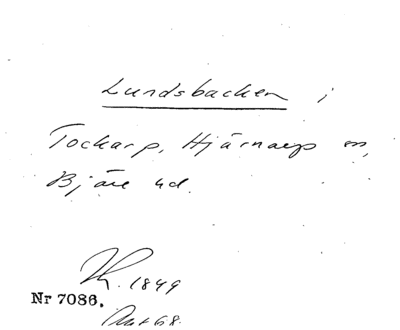 Lundsbacken i
Tockarp, Hjärnarp sn,
Bjäre hd.
1849
Nr 7086.